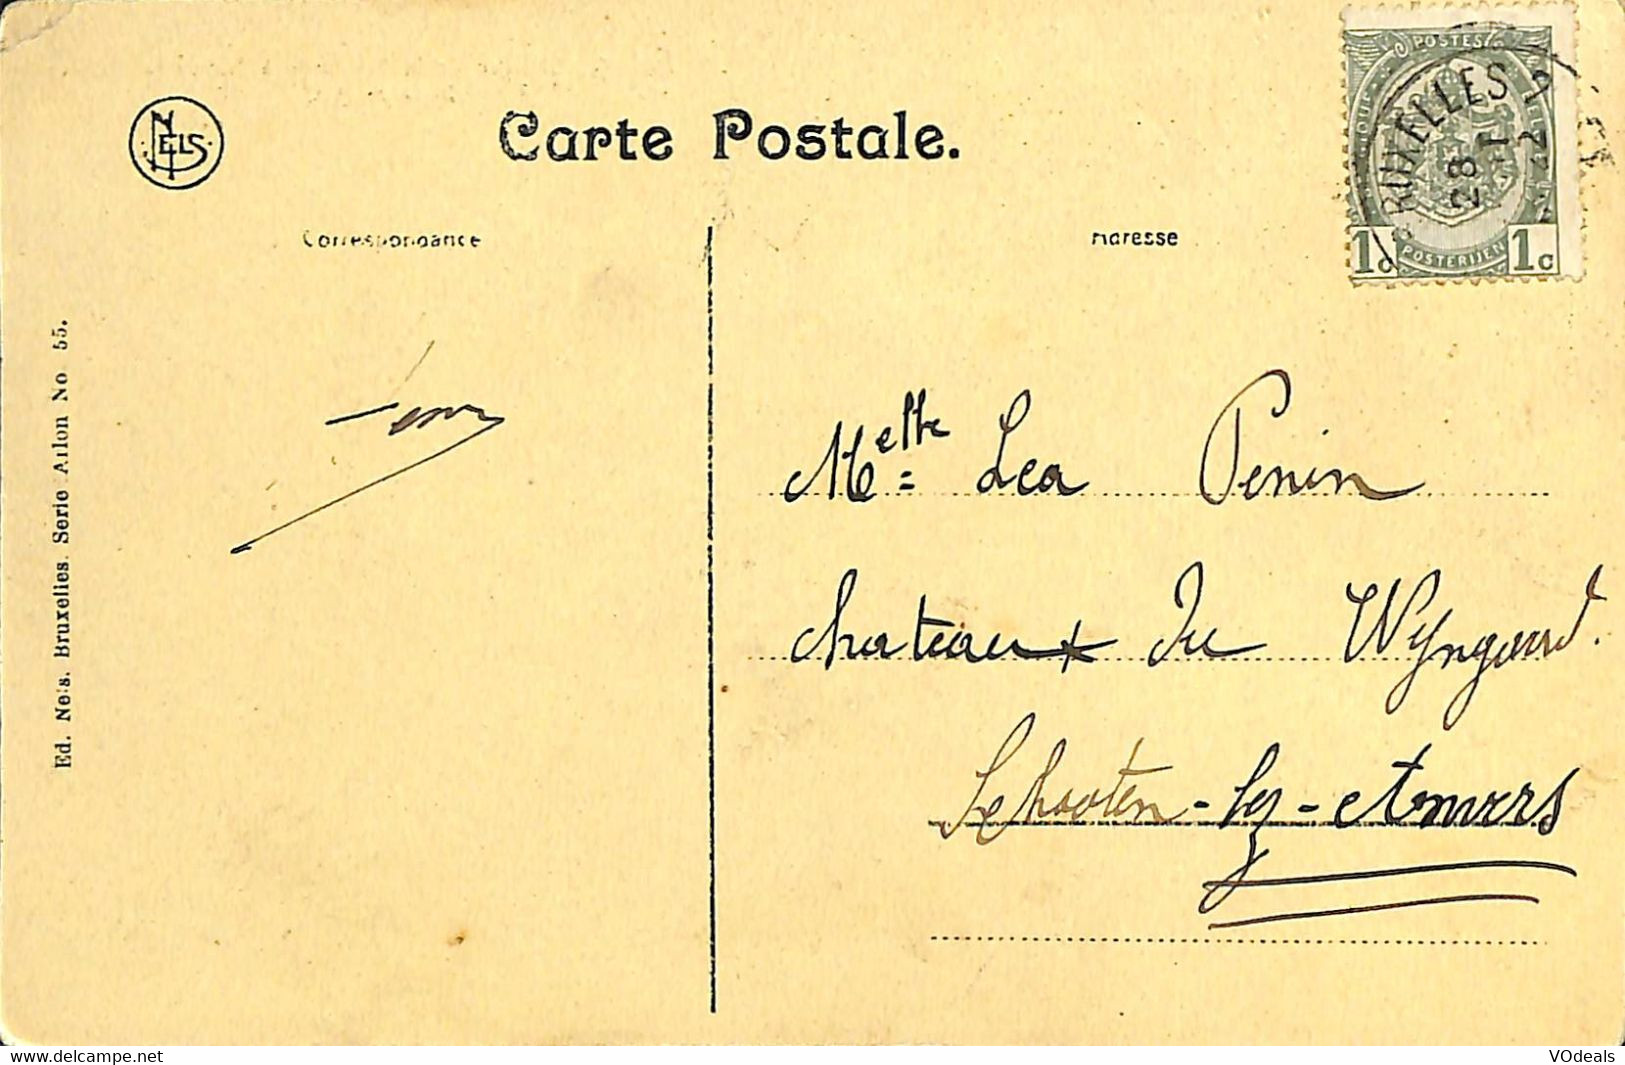 NELS
Carte Postale.
POSTES
BRUXELLES
28
1
12
POSTERIJEN
1c 1c
Correspondance
Adresse
Ed. Nels. Bruxelles. Serie Arlon No 55.
Melle Lea Penin
chateaux du Wyngaerd.
Schooten-lez-Anvers
www.delcampe.net
VOdeals